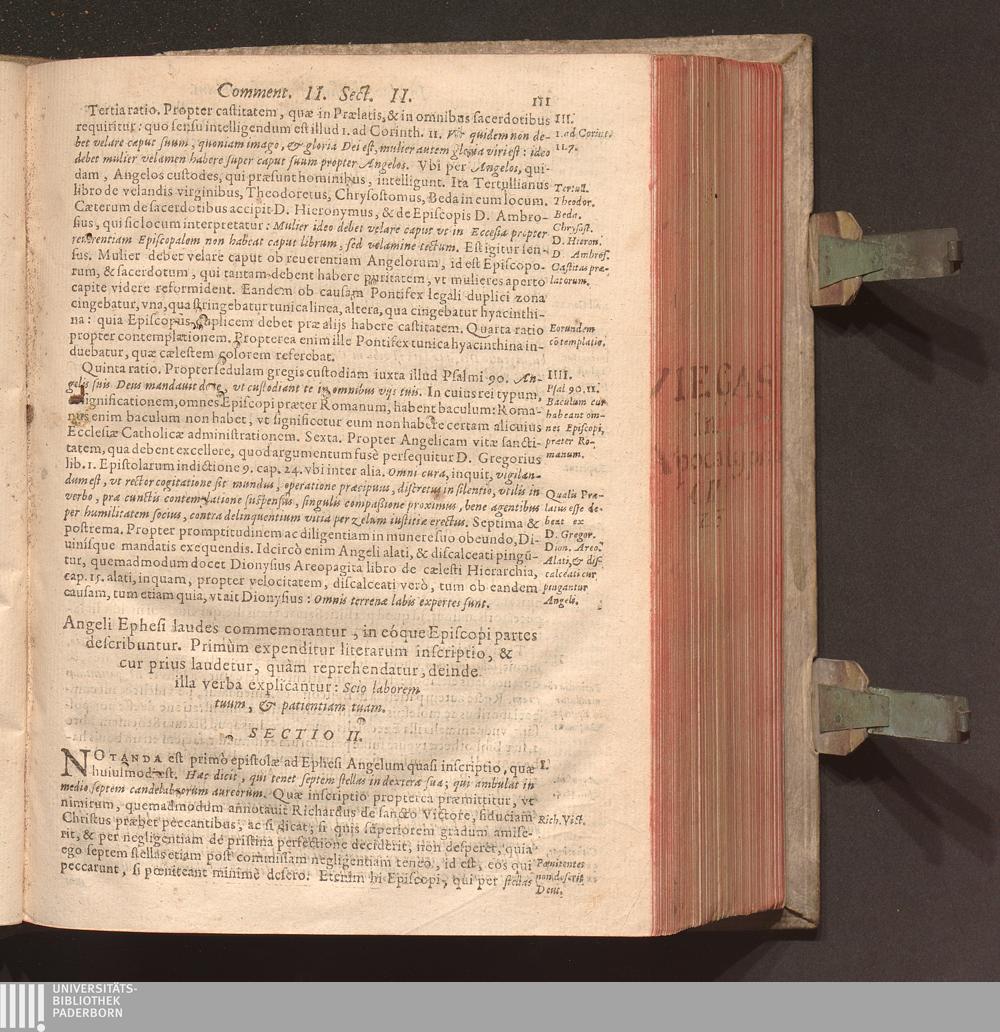 Comment. II. Sect. II. 111
Tertia ratio. Propter castitatem, quæ in Prælatis, & in omnibus sacerdotibus
requiritur: quo sensu intelligendum est illud 1. ad Corinth. 11. Vir quidem non de-
bet velare caput suum, quoniam imago, & gloria Dei est, mulier autem gloria viri est: ideo
debet mulier velamen habere super caput suum propter Angelos. Vbi per Angelos, qui-
dam, Angelos custodes, qui præsunt hominibus, intelligunt. Ita Tertullianus
libro de velandis virginibus, Theodoretus, Chrysostomus, Beda in eum locum.
Cæterum de sacerdotibus accipit D. Hieronymus, & de Episcopis D. Ambro-
sius, qui sic locum interpretatur: Mulier ideo debet velare caput vt in Eccesia propter
reuerentiam Episcopalem non habeat caput librum, sed velamine tectum. Est igitur sen-
sus. Mulier debet velare caput ob reuerentiam Angelorum, id est Episcopo-
rum, & sacerdotum, qui tantam debent habere puritatem, vt mulieres aperto
capite videre reformident. Eandem ob causam Pontifex legali duplici zona
cingebatur, vna, qua stringebatur tunica linea, altera, qua cingebatur hyacinthi-
na: quia Episcopus duplicem debet præ alijs habere castitatem. Quarta ratio
propter contemplationem. Propterea enim ille Pontifex tunica hyacinthina in-
duebatur, quæ cælestem colorem referebat.
Quinta ratio. Propter sedulam gregis custodiam iuxta illud Psalmi 90. An-
gelis suis Deus mandauit de te, vt custodiant te in omnibus vijs tuis. In cuius rei typum,
& significationem, omnes Episcopi præter Romanum, habent baculum: Roma-
nus enim baculum non habet, vt significetur eum non habere certam alicuius
Ecclesiæ Catholicæ administrationem. Sexta. Propter Angelicam vitæ sancti-
tatem, qua debent excellere, quod argumentum fusè persequitur D. Gregorius
lib. 1. Epistolarum indictione 9. cap. 24. vbi inter alia. Omni cura, inquit, vigilan-
dum est, vt rector cogitatione sit mundus, operatione præcipuus, discretus in silentio, vtilis in
verbo, præ cunctis contemplatione suspensus, singulis compaßione proximus, bene agentibus
per humilitatem socius, contra delinquentium vitia per zelum iustitiæ erectus. Septima &
postrema. Propter promptitudinem ac diligentiam in munere suo obeundo, Di-
uinisque mandatis exequendis. Idcircò enim Angeli alati, & discalceati pingũ-
tur, quemadmodum docet Dionysius Areopagita libro de cælesti Hierarchia,
cap. 15. alati, inquam, propter velocitatem, discalceati verò, tum ob eandem
causam, tum etiam quia, vt ait Dionysius: Omnis terrenæ labis expertes sunt.
Angeli Ephesi laudes commemorantur, in eóque Episcopi partes
describuntur. Primùm expenditur literarum inscriptio, &
cur prius laudetur, quàm reprehendatur, deinde
illa verba explicantur: Scio laborem
tuum, & patientiam tuam.
SECTIO II.
NOTANDA est primò epistolæ ad Ephesi Angelum quasi inscriptio, quæ
huiusmodi est. Hæc dicit, qui tenet septem stellas in dextera sua; qui ambulat in
medio septem candelabrorum aureorum. Quæ inscriptio propterea præmittitur, vt
nimirum, quemadmodum annotauit Richardus de sancto Victore, fiduciam
Christus præbet peccantibus, ac si dicat; si quis superiorem gradum amise-
rit, & per negligentiam de pristina perfectione deciderit, non desperet, quia
ego septem stellas etiam post commissam negligentiam teneo, id est, eos qui
peccarunt, si pœniteant minimè desero. Etenim hi Episcopi, qui per stellas
III.
1. ad Corint.
11.7.
Tertull.
Theodor.
Beda.
Chrysost.
D. Hieron.
D. Ambros.
Castitas præ-
latorum.
Eorundem
cõtemplatio.
IIII.
Psal 90.11.
Baculum cur
habeant om-
nes Episcopi,
præter Ro-
manum.
Qualis Præ-
latus esse de-
beat ex
D. Gregor.
Dion. Areo.
Alati, & dis-
calceati cur
pingantur
Angeli.
I.
Rich. Vict.
Pœnitentes
non deserit
Deus.
VIEGAS
in
Apocalipsim
UNIVERSITÄTS-
BIBLIOTHEK
PADERBORN